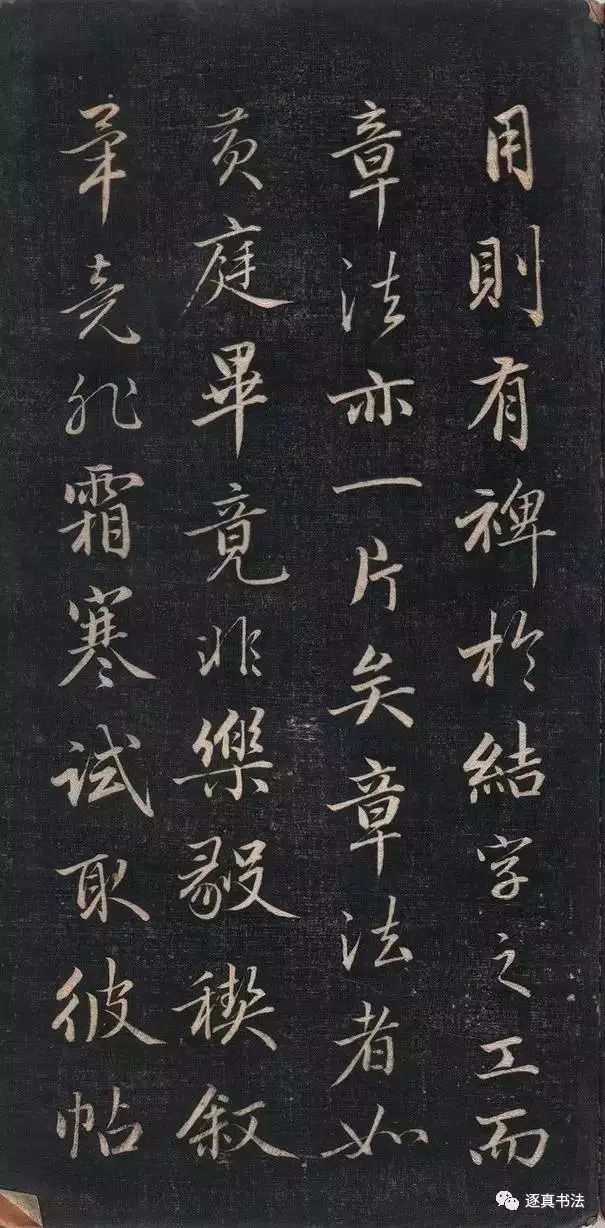 用則有裨扵結字之工而
章法亦一片矣章法者如
黃庭畢竟非樂毅稧叙
畢竟非霜寒試取彼帖
逐真书法